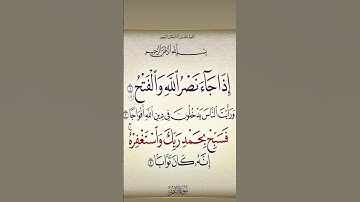 بِسْمِ اللَّهِ الرَّحْمَٰنِ الرَّحِيمِ
إِذَا جَاءَ نَصْرُ اللَّهِ وَالْفَتْحُ ١
وَرَأَيْتَ النَّاسَ يَدْخُلُونَ فِي دِينِ اللَّهِ أَفْوَاجًا ٢
فَسَبِّحْ بِحَمْدِ رَبِّكَ وَاسْتَغْفِرْهُ ۚ
إِنَّهُ كَانَ تَوَّابًا ٣